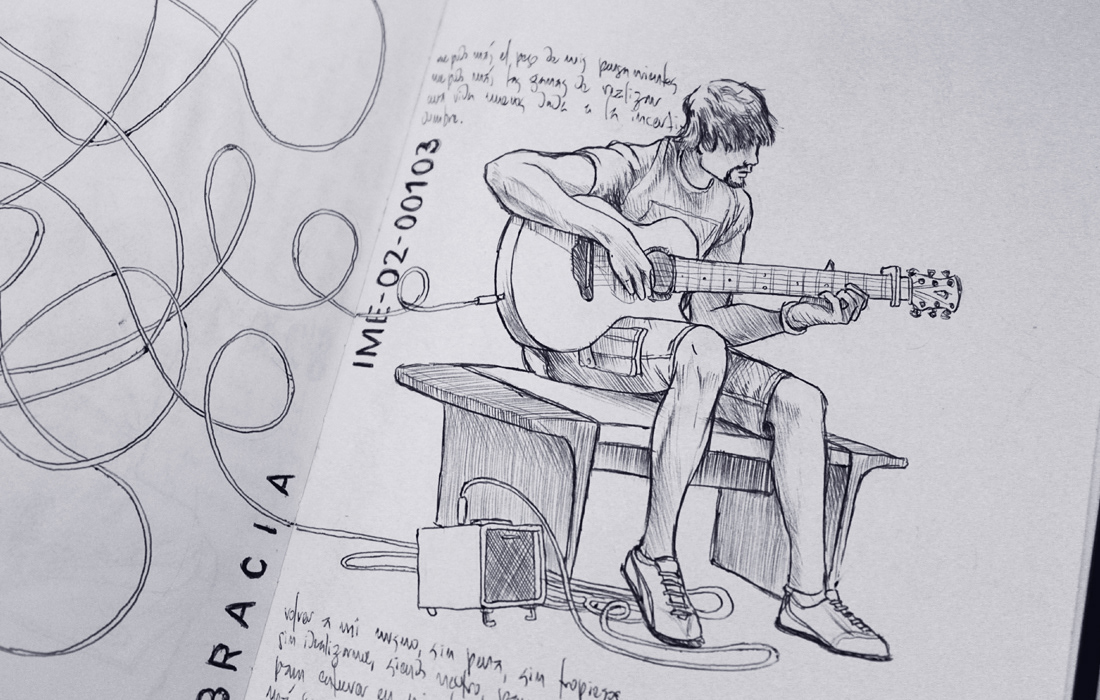 me pide más el peso de mis pensamientos
me pide más las ganas de realizar
una vida nueva dada a la incerti
dumbre.
IME-02-00103
BRACIA
volver a mí mismo, sin pena, sin tropiezos
sin idealizarme, siendo neutro,
para en mi
más